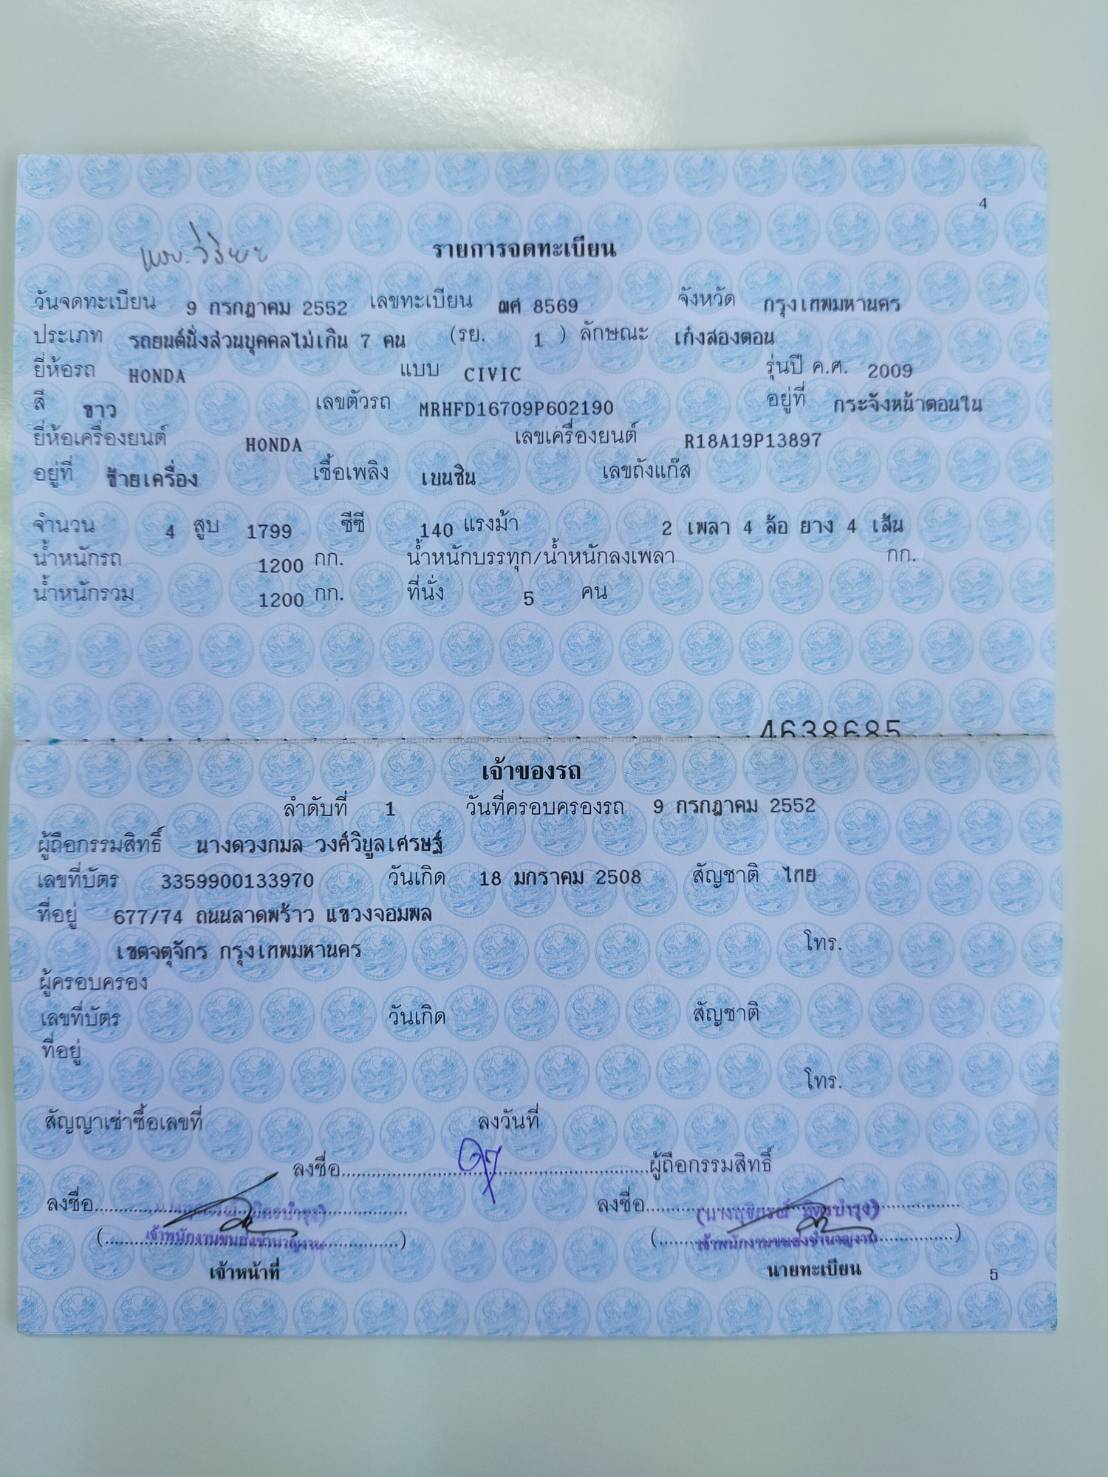 4
รายการจดทะเบียน
วันจดทะเบียน 9 กรกฎาคม 2552 เลขทะเบียน ฌศ 8569 จังหวัด กรุงเทพมหานคร
ประเภท รถยนต์นั่งส่วนบุคคลไม่เกิน 7 คน (รย. 1 ) ลักษณะ เก๋งสองตอน
ยี่ห้อรถ HONDA แบบ CIVIC รุ่นปี ค.ศ. 2009
สี ขาว เลขตัวรถ MRHFD16709P602190 อยู่ที่ กระจังหน้าตอนใน
ยี่ห้อเครื่องยนต์ HONDA เลขเครื่องยนต์ R18A19P13897
อยู่ที่ ซ้ายเครื่อง เชื้อเพลิง เบนซิน เลขถังแก๊ส
จำนวน 4 สูบ 1799 ซีซี 140 แรงม้า 2 เพลา 4 ล้อ ยาง 4 เส้น
น้ำหนักรถ 1200 กก. น้ำหนักบรรทุก/น้ำหนักลงเพลา กก.
น้ำหนักรวม 1200 กก. ที่นั่ง 5 คน
4638685
เจ้าของรถ
ลำดับที่ 1 วันที่ครอบครองรถ 9 กรกฎาคม 2552
ผู้ถือกรรมสิทธิ์ นางดวงกมล วงศ์วิบูลเศรษฐ์
เลขที่บัตร 3359900133970 วันเกิด 18 มกราคม 2508 สัญชาติ ไทย
ที่อยู่ 677/74 ถนนลาดพร้าว แขวงจอมพล
เขตจตุจักร กรุงเทพมหานคร โทร.
ผู้ครอบครอง
เลขที่บัตร วันเกิด สัญชาติ
ที่อยู่
โทร.
สัญญาเช่าซื้อเลขที่ ลงวันที่
ลงชื่อ ผู้ถือกรรมสิทธิ์
ลงชื่อ ลงชื่อ
เจ้าพนักงานขนส่งชำนาญงาน เจ้าพนักงานขนส่งชำนาญงาน
เจ้าหน้าที่ นายทะเบียน 5